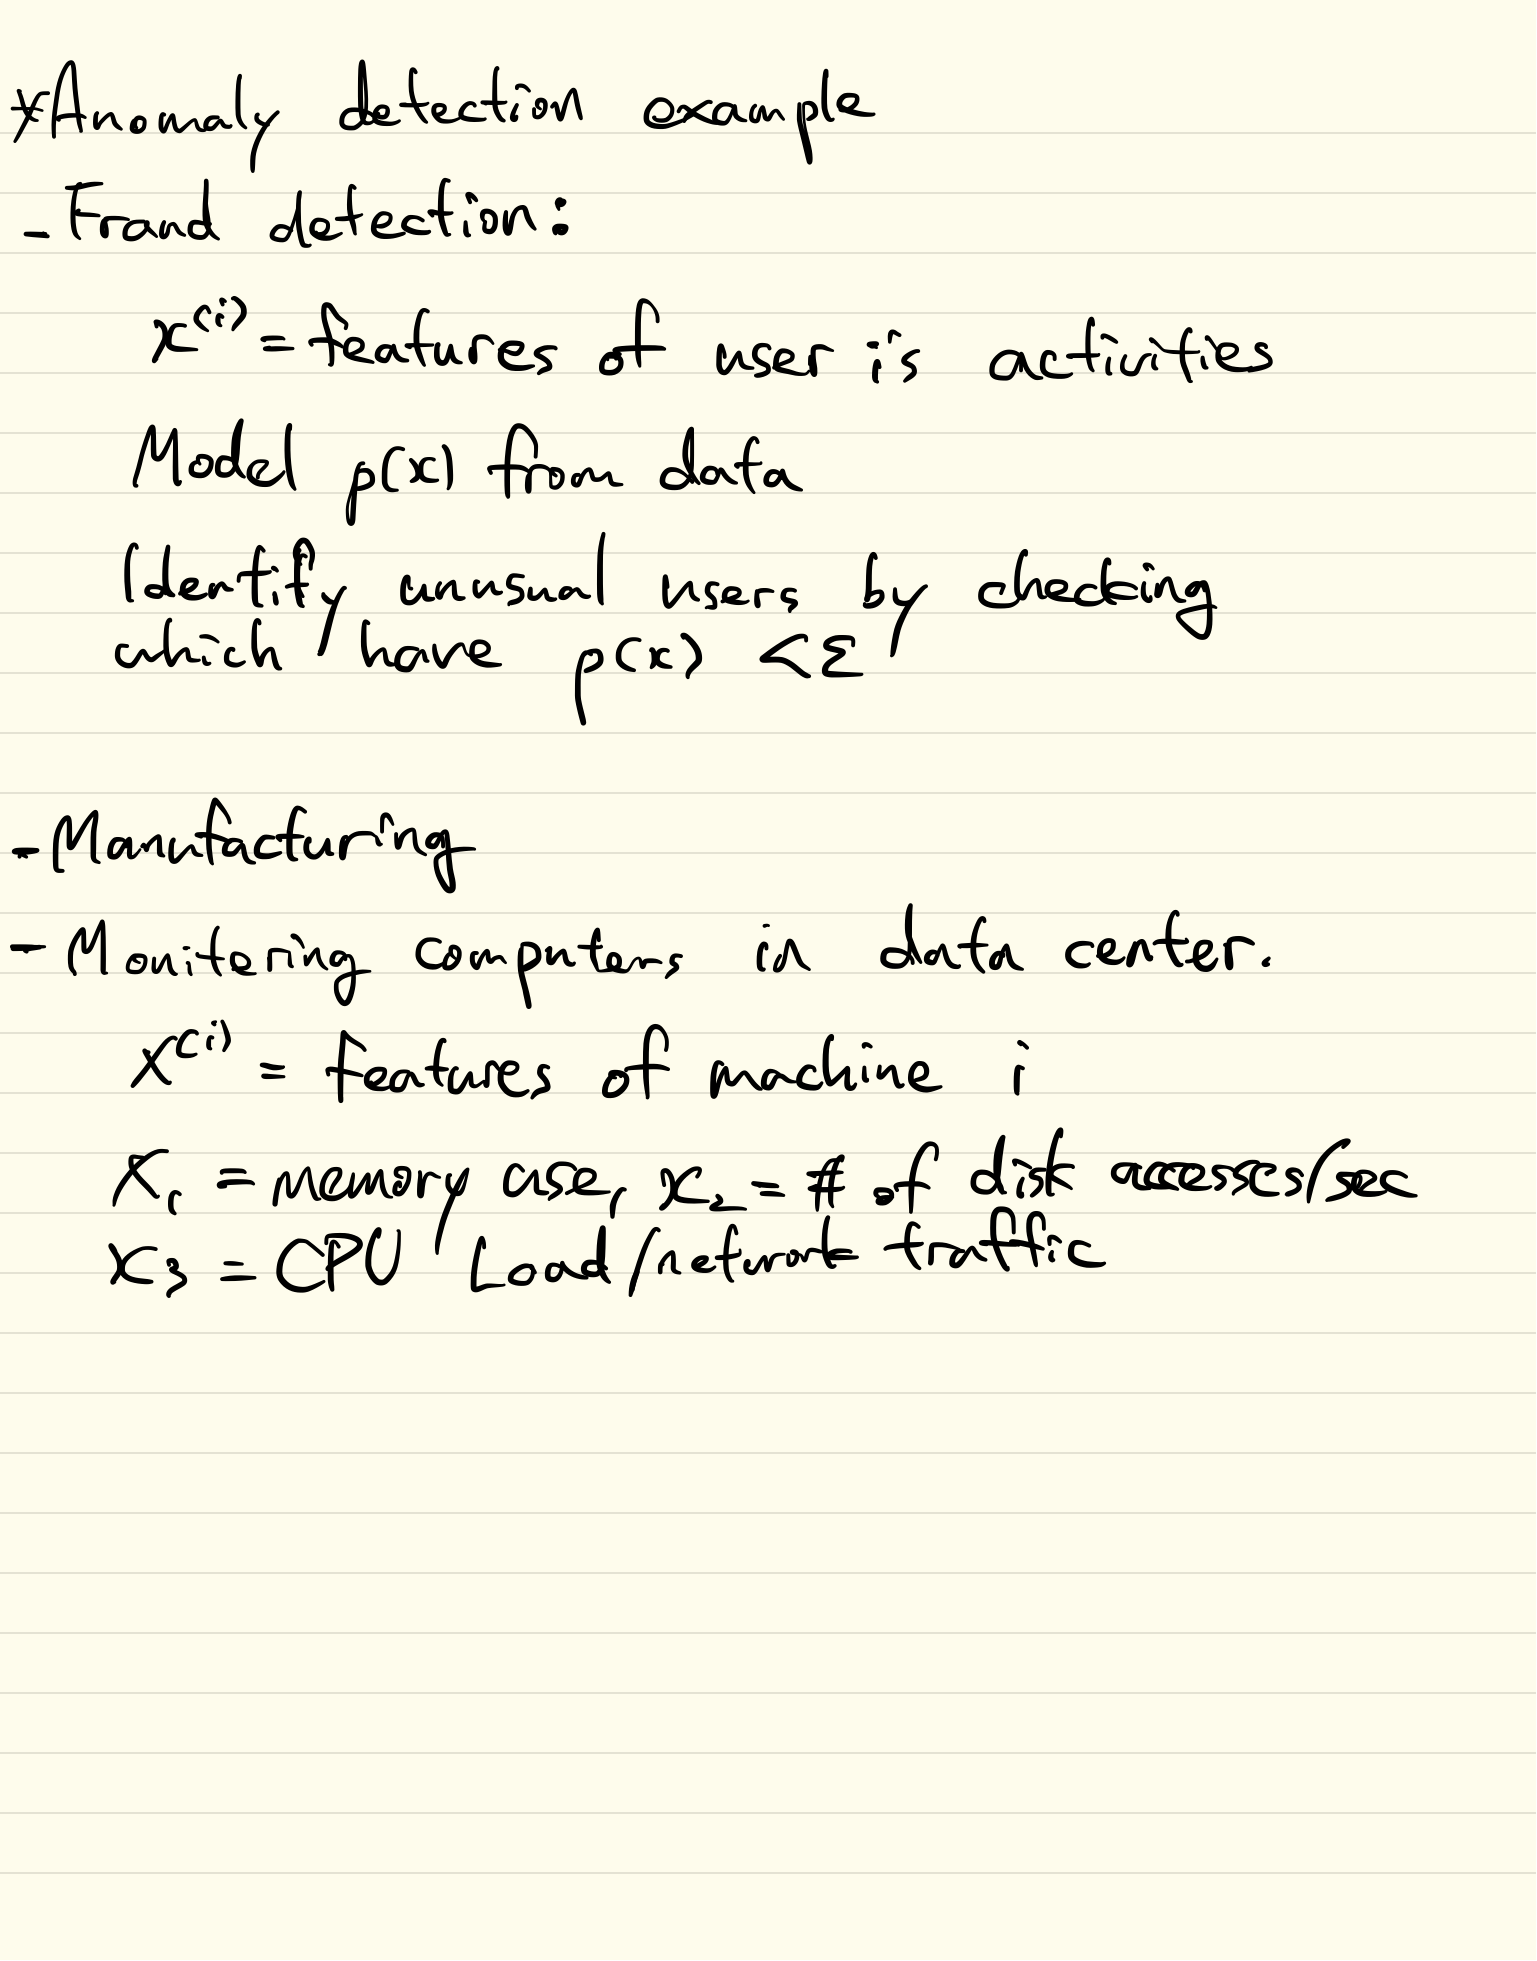 *Anomaly detection example
- Fraud detection:
x^(i) = features of user i's activities
Model p(x) from data
Identify unusual users by checking
which have p(x) < ε
- Manufacturing
- Monitering computers in data center.
x^(i) = features of machine i
x₁ = memory use, x₂ = # of disk accesses/sec
x₃ = CPU Load/network traffic